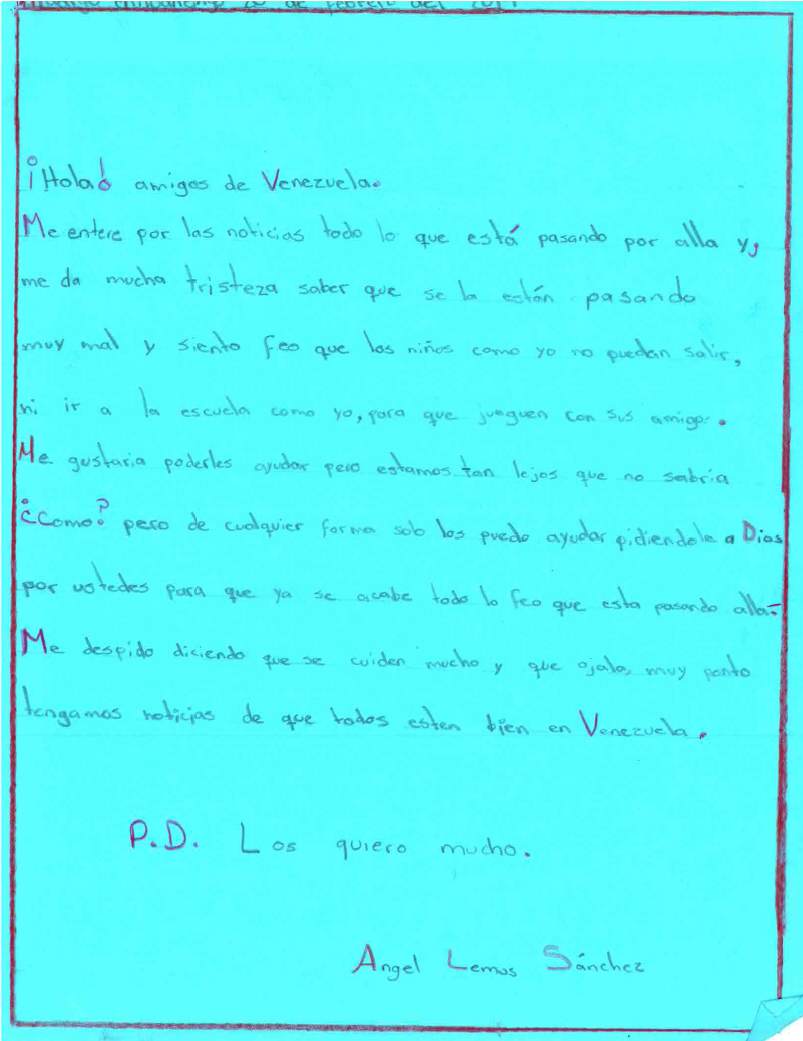 de Febrero del
¡Hola! amigos de Venezuela.
Me entere por las noticias todo lo que está pasando por alla y,
me da mucha tristeza saber que se la están pasando
muy mal y siento feo que los niños como yo no puedan salir,
ni ir a la escuela como yo, para que jueguen con sus amigos.
Me gustaria poderles ayudar pero estamos tan lejos que no sabria
¿Como? pero de cualquier forma solo los puedo ayudar pidiendole a Dios
por ustedes para que ya se acabe todo lo feo que esta pasando alla.
Me despido diciendo que se cuiden mucho y que ojala, muy ponto
tengamos noticias de que todos esten bien en Venezuela.
P.D. Los quiero mucho.
Angel Lemus Sánchez